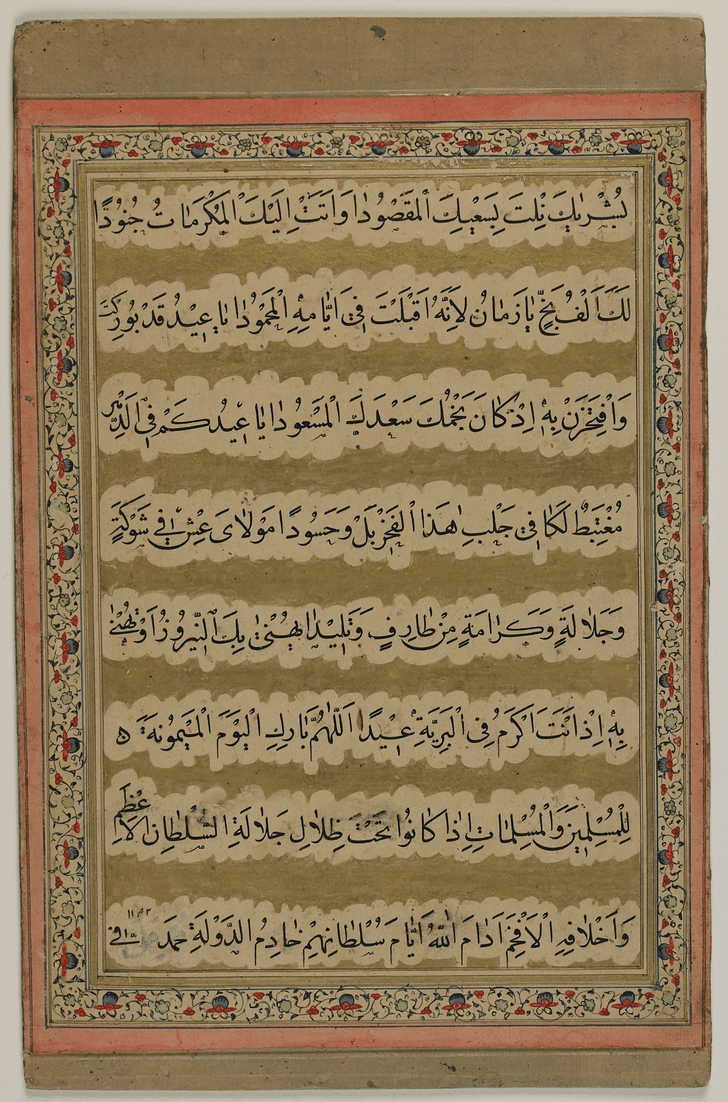 بُشْرىٰكَ نِلْتَ بِسَعْيِكَ الْمَقْصُودٰا وَاَتَتْ اِلَيْكَ الْمَكْرَمٰاتُ جُنُودًا
لَكَ اَلْفُ بَخٍّ يٰا زَمٰانُ لِاَنَّهُ اَقْبَلْتَ فِي اَيّٰامِهِ الْمَحْمُودٰا يٰا عِيْدُ قَدْ بُورِكْتَ
وَافْتَخَرْنَ بِهِ اِذْ كٰانَ نَجْمُكَ سَعْدَكَ الْمَسْعُودٰا يٰا عِيْدُ كَمْ فِي الدَّهْرِ
مُغْتَبِطٌ لَكٰا فِي جَلْبِ هٰذَا الْفَخْرِ بَلْ وَحَسُودًا مَوْلٰايَ عِشْ فِي شَوْكَةٍ
وَجَلٰالَةٍ وَكَرٰامَةٍ مِنْ طٰارِفٍ وَتَلِيْدٰا يُهْنىٰ بِكَ النَّيْرُوزُ اَوْ تُهْنىٰ
بِهِ اِذْ اَنْتَ اَكْرَمُ فِي الْبَرِيَّةِ عِيْدًا اَللّٰهُمَّ بٰارِكِ الْيَوْمَ الْمَيْمُونَةَ ه
لِلْمُسْلِمِيْنَ وَالْمُسْلِمٰاتِ اِذٰا كٰانُوا تَحْتَ ظِلٰالِ جَلٰالَةِ السُّلْطٰانِ الْاَعْظَمِ
وَاَخْلٰافِهِ الْاَفْخَمِ اَدٰامَ اللّٰهُ اَيّٰامَ سُلْطٰانِهِمْ خٰادِمُ الدَّوْلَةِ